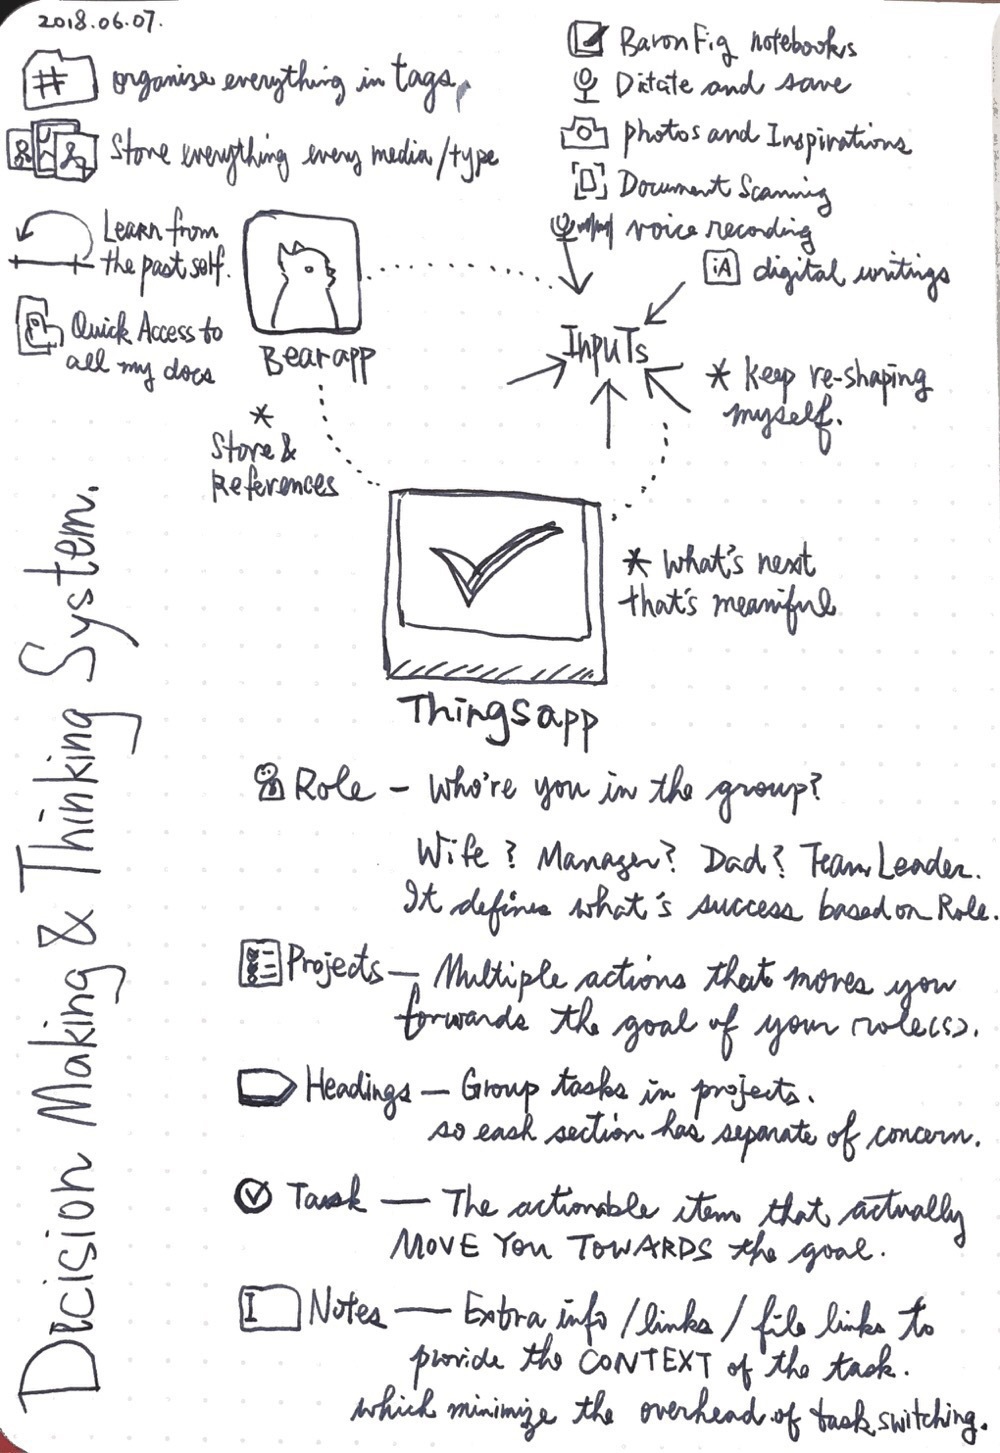 2018.06.07.
# organize everything in tags,
Store everything every media/type
Learn from
the past self.
Quick Access to
all my docs
Bearapp
*
Store &
References
BaronFig notebooks
Dictate and save
photos and Inspirations
Document Scanning
voice recording
iA digital writings
InpuTs
* Keep re-shaping
myself.
* What's next
that's meaniful
Thingsapp
Decision Making & Thinking System.
Role - Who're you in the group?
Wife? Manager? Dad? Team Leader.
It defines what's success based on Role.
Projects — Multiple actions that moves you
forwards the goal of your role(s).
Headings — Group tasks in projects.
so each section has separate of concern.
Task — The actionable item that actually
MOVE YOU TOWARDS the goal.
I Notes — Extra info / links / file links to
provide the CONTEXT of the task.
which minimize the overhead of task switching.